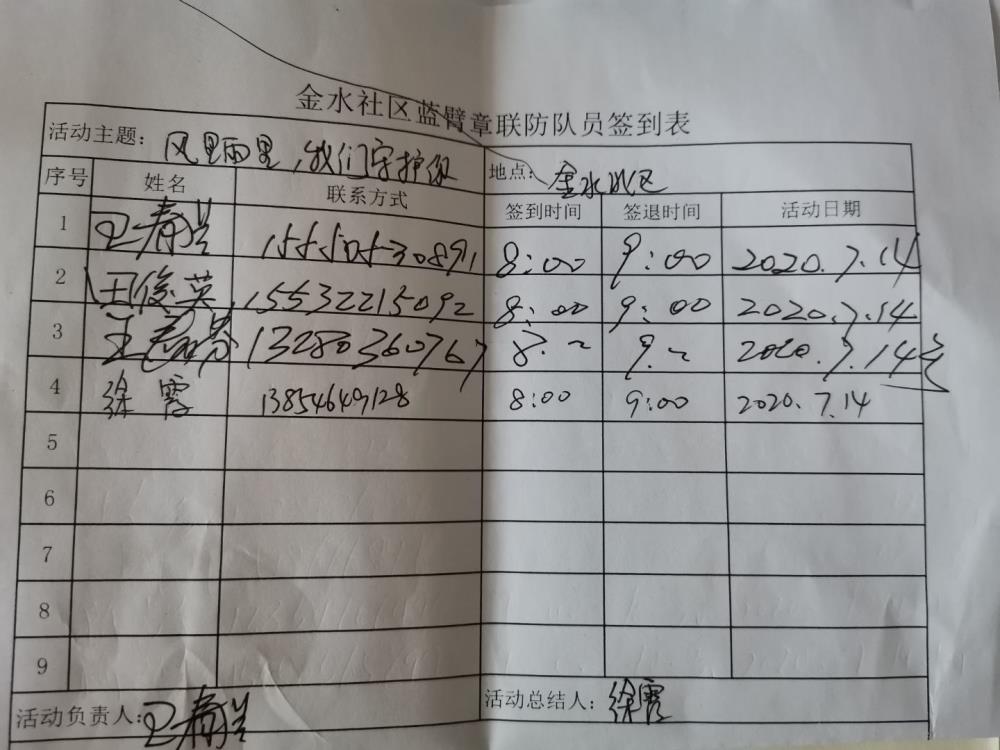 金水社区蓝臂章联防队员签到表
活动主题：风里雨里，我们守护你 地点：金水社区
序号 姓名 联系方式 签到时间 签退时间 活动日期
1 8:00 9:00 2020.7.14
2 王俊英 15532215092 8:00 9:00 2020.7.14
3 13280360767 8:~ 9:~ 2020.7.14
4 徐霞 13854649128 8:00 9:00 2020.7.14
5
6
7
8
9
活动负责人： 活动总结人：徐霞